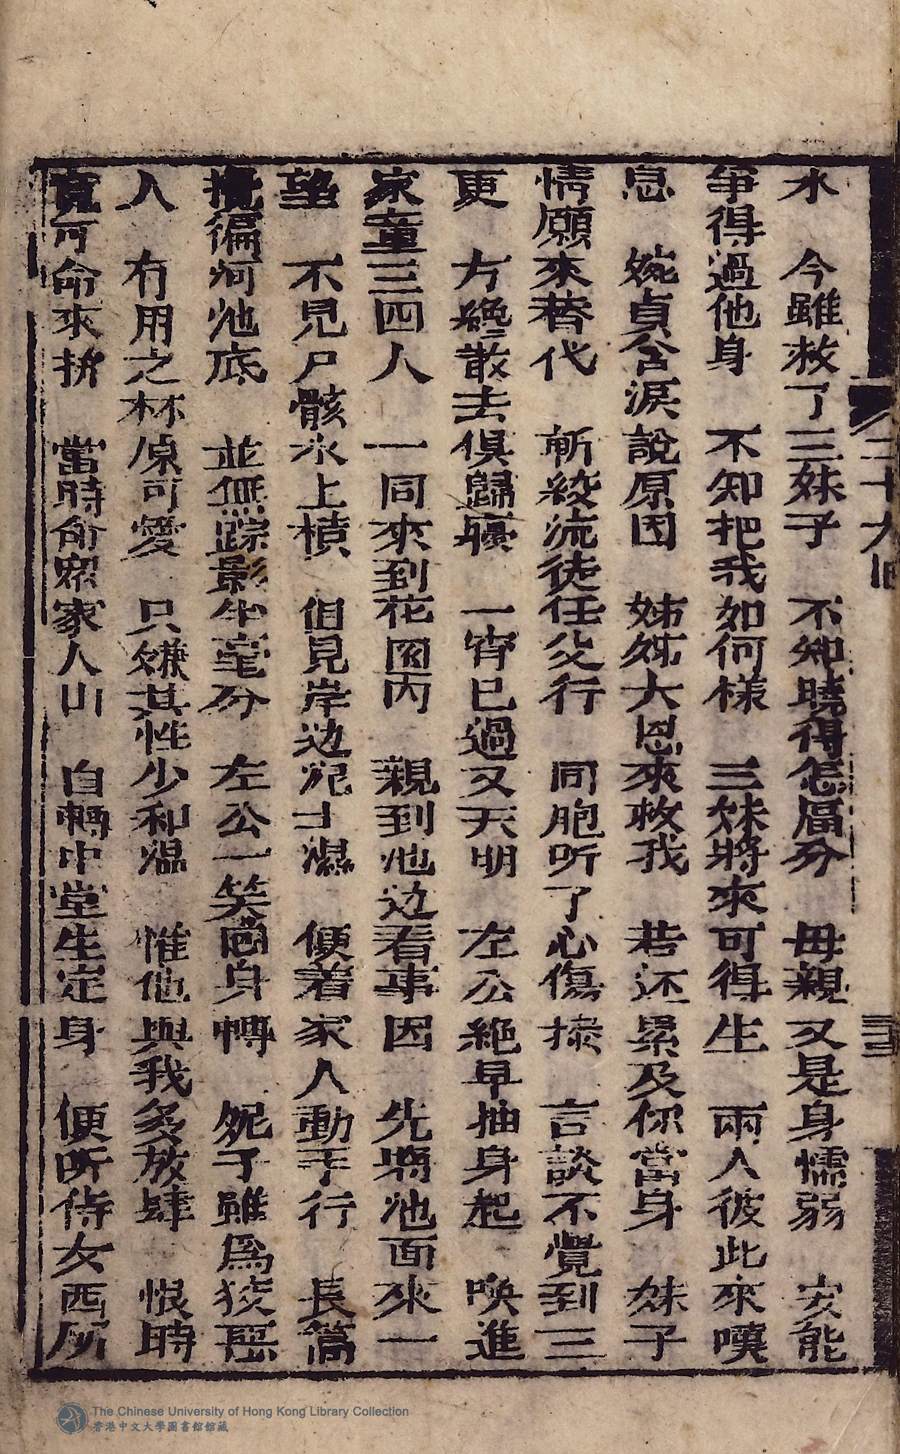 水　今雖救了三妹子　不知曉得怎區分　毋親又是身懦弱　安能
爭得過他身　不知把我如何樣　三妹將來可得生　兩人彼此來嘆
息　婉貞含淚說原因　姊姊大恩來救我　若还累及你當身　妹子
情願來替代　斬絞流徒任父行　同胞听了心傷慘　言談不覺到三
更　方纔散去俱歸寢　一宵已過又天明　左公絕早抽身起　喚進
家童三四人　一同來到花園內　親到池边看事因　先將池面來一
望　不見尸骸水上橫　但見岸边泥土濕　便着家人動手行　長篙
攪徧河池底　並無踪影半毫分　左公一笑回身轉　妮子雖為狡惡
人　有用之材原可愛　只嫌其性少和温　惟他與我多放肆　恨時
寬可命來拚　當時命眾家人出　自轉中堂坐定身　便听侍女西所
二十九回
三
The Chinese University of Hong Kong Library Collection
香港中文大學圖書館館藏